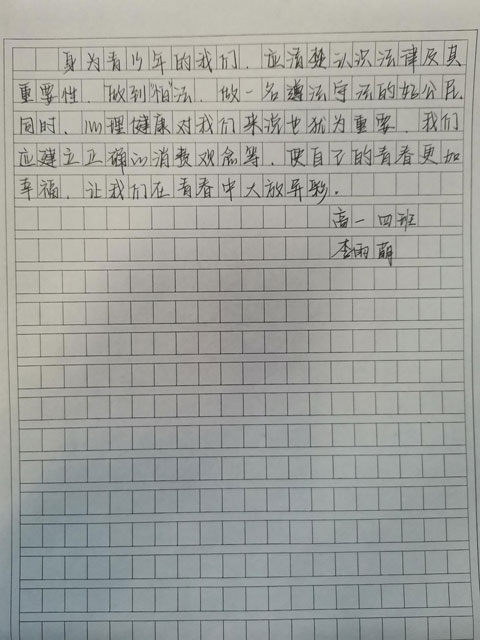 身为青少年的我们，应清楚认识法律及其
重要性，做到“怕”法，做一名遵法守法的好公民，
同时，心理健康对我们来说也犹为重要，我们
应建立正确的消费观念等，使自己的青春更加
幸福，让我们在青春中大放异彩。
高一四班
李雨萌